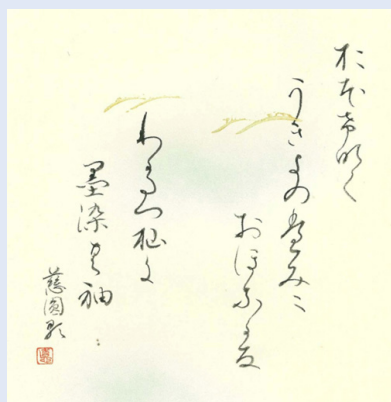 おほけなく
うきよのたみに
おほふかな
わがたつ杣に
墨染の袖
慈圓